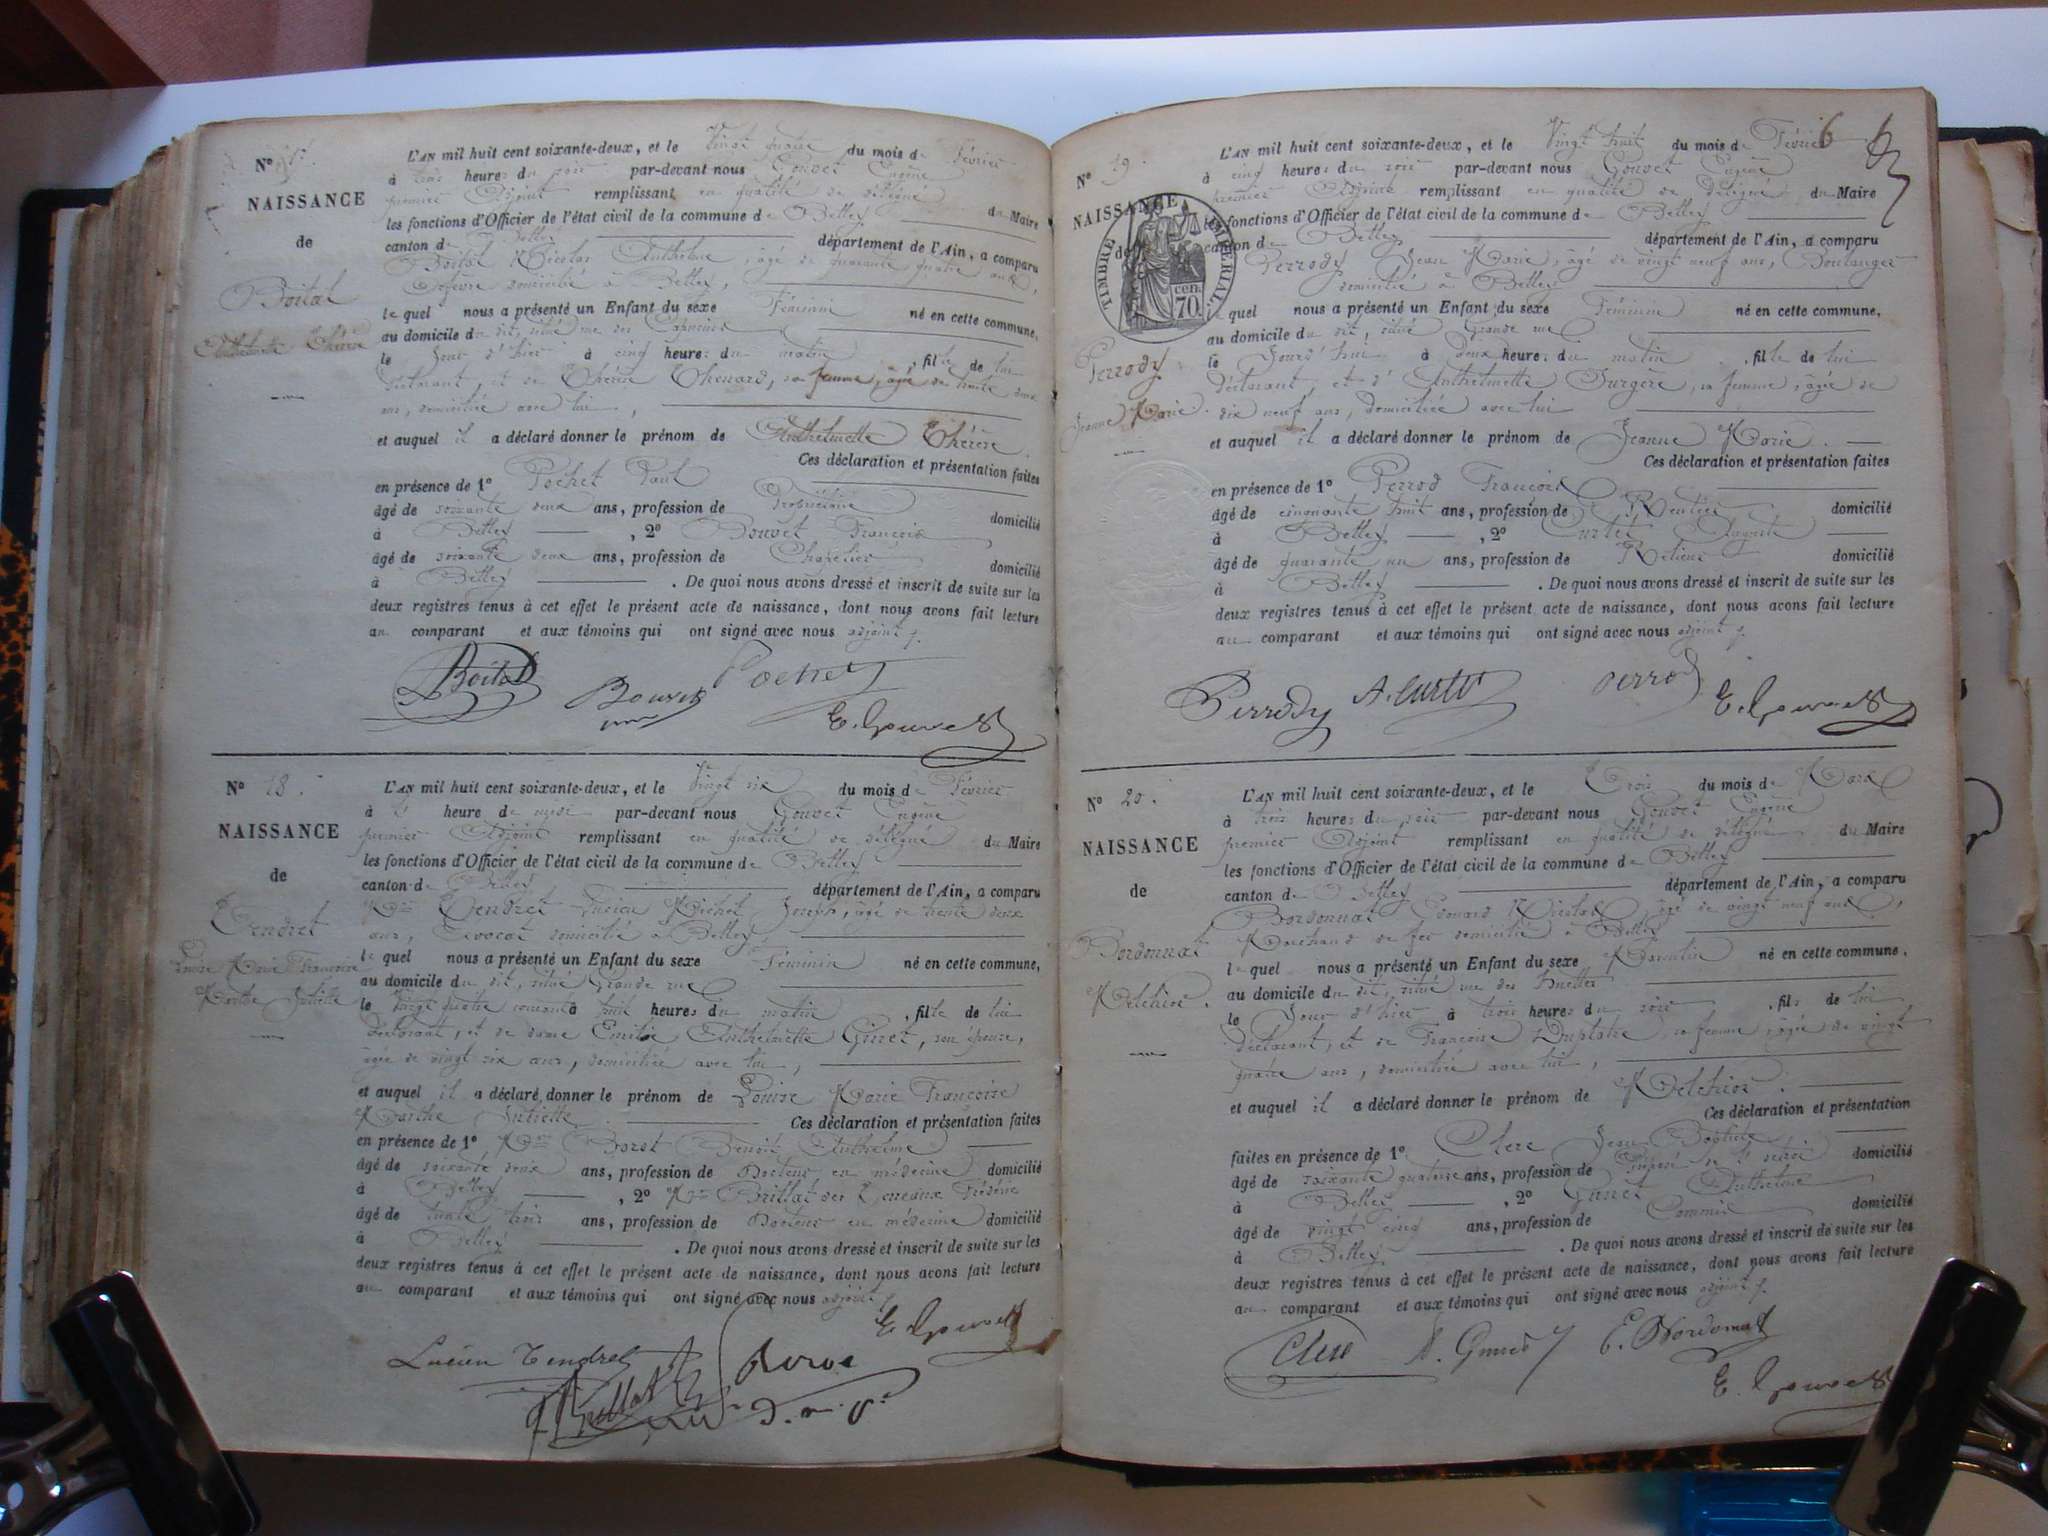 N° 17.
NAISSANCE
de
Boital
Anthelmette Thérèse
L'AN mil huit cent soixante-deux, et le Vingt quatre du mois de Février
à trois heures du soir par-devant nous Gouvet Eugène
premier Adjoint remplissant en qualité de délégué du Maire
les fonctions d'Officier de l'état civil de la commune de Belley
canton de Belley département de l'Ain, a comparu
Boital Nicolas Anthelme, âgé de quarante quatre ans,
Orfèvre domicilié à Belley,
le quel nous a présenté un Enfant du sexe Féminin né en cette commune,
au domicile du dit, situé rue des Capucins
le Jour d'hier à cinq heures du matin, fille de lui
déclarant, et de Thérèse Chenard, sa femme, âgée de trente deux
ans, domiciliée avec lui,
et auquel il a déclaré donner le prénom de Anthelmette Thérèse.
Ces déclaration et présentation faites
en présence de 1° Pochet Paul
âgé de soixante deux ans, profession de Propriétaire domicilié
à Belley, 2° Bouvet François
âgé de soixante deux ans, profession de Chapelier domicilié
à Belley. De quoi nous avons dressé et inscrit de suite sur les
deux registres tenus à cet effet le présent acte de naissance, dont nous avons fait lecture
au comparant et aux témoins qui ont signé avec nous adjoint
Boital Bouvet Pochet
E. Gouvet
N° 18.
NAISSANCE
de
Tendret
Louise Marie Françoise
Marthe Juliette
L'AN mil huit cent soixante-deux, et le Vingt six du mois de Février
à heure de midi par-devant nous Gouvet Eugène
premier Adjoint remplissant en qualité de délégué du Maire
les fonctions d'Officier de l'état civil de la commune de Belley
canton de Belley département de l'Ain, a comparu
Mr Tendret Lucien Michel Joseph, âgé de trente deux
ans, Avocat domicilié à Belley
le quel nous a présenté un Enfant du sexe Féminin né en cette commune,
au domicile du dit, situé Grande rue
le Vingt quatre courant à huit heures du matin, fille de lui
déclarant, et de dame Emilie Anthelmette Ginet, son épouse,
âgée de vingt six ans, domiciliée avec lui,
et auquel il a déclaré donner le prénom de Louise Marie Françoise
Marthe Juliette. Ces déclaration et présentation faites
en présence de 1° Mr Benoit Anthelme
âgé de soixante deux ans, profession de Docteur en médecine domicilié
à Belley, 2° Mr Brillat des Terreaux Frédéric
âgé de trente trois ans, profession de Docteur en médecine domicilié
à Belley. De quoi nous avons dressé et inscrit de suite sur les
deux registres tenus à cet effet le présent acte de naissance, dont nous avons fait lecture
au comparant et aux témoins qui ont signé avec nous adjoint
E. Gouvet
Lucien Tendret
Brillat
D. m. P.
6
N° 19.
NAISSANCE
de
TIMBRE IMPERIAL
70 cen.
Perrody
Jeanne Marie.
L'AN mil huit cent soixante-deux, et le Vingt huit du mois de Février
à cinq heures du soir par-devant nous Gouvet Eugène
premier Adjoint remplissant en qualité de délégué du Maire
les fonctions d'Officier de l'état civil de la commune de Belley
canton de Belley département de l'Ain, a comparu
Perrody Jean Marie, âgé de vingt neuf ans, Boulanger
domicilié à Belley
le quel nous a présenté un Enfant du sexe Féminin né en cette commune,
au domicile du dit, situé Grande rue
le Jourd'hui à deux heures du matin, fille de lui
déclarant, et d'Anthelmette Surgère, sa femme, âgée de
dix neuf ans, domiciliée avec lui
et auquel il a déclaré donner le prénom de Jeanne Marie.
Ces déclaration et présentation faites
en présence de 1° Perrod François
âgé de cinquante huit ans, profession de Rentier domicilié
à Belley, 2° Curtet Auguste
âgé de quarante un ans, profession de Relieur domicilié
à Belley. De quoi nous avons dressé et inscrit de suite sur les
deux registres tenus à cet effet le présent acte de naissance, dont nous avons fait lecture
au comparant et aux témoins qui ont signé avec nous adjoint
Perrody A. Curtet Perrod E. Gouvet
N° 20.
NAISSANCE
de
Bordonnat
Melchior.
L'AN mil huit cent soixante-deux, et le Trois du mois de Mars
à trois heures du soir par-devant nous Gouvet Eugène
premier Adjoint remplissant en qualité de délégué du Maire
les fonctions d'Officier de l'état civil de la commune de Belley
canton de Belley département de l'Ain, a comparu
Bordonnat Edouard Nicolas, âgé de vingt neuf ans,
Marchand de fer domicilié à Belley
le quel nous a présenté un Enfant du sexe Masculin né en cette commune,
au domicile du dit, situé rue des
le Jour d'hier à trois heures du soir, fils de lui
déclarant, et de Françoise Duplatre, sa femme, âgée de vingt
quatre ans, domiciliée avec lui,
et auquel il a déclaré donner le prénom de Melchior.
Ces déclaration et présentation
faites en présence de 1° Clerc Jean Baptiste
âgé de soixante quatorze ans, profession de domicilié
à Belley, 2° Anthelme
âgé de vingt cinq ans, profession de Commis domicilié
à Belley. De quoi nous avons dressé et inscrit de suite sur les
deux registres tenus à cet effet le présent acte de naissance, dont nous avons fait lecture
au comparant et aux témoins qui ont signé avec nous adjoint
Clerc E. Bordonnat
E. Gouvet